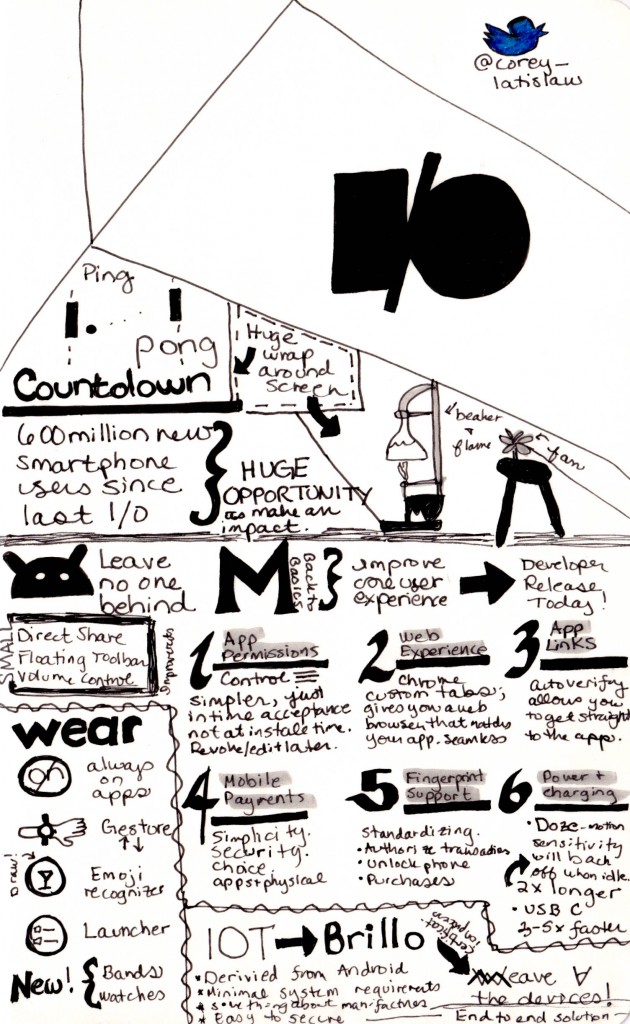 @corey_
latislaw
I/O
Ping
pong
Countdown
Huge
wrap
around
screen
beaker
+
flame
fan
600 million new
smartphone
users since
last I/O
HUGE
OPPORTUNITY
to make an
impact.
Leave
no one
behind
M
Back to
Basics
improve
core user
experience
Developer
Release
Today!
SMALL
Direct Share
Floating Toolbar
Volume Control
improvements
1 App
Permissions
Control
simpler, just
in time acceptance
not at install time.
Revoke/edit later.
2 Web
Experience
Chrome
custom tabs;
gives you a web
browser that matches
your app. seamless
3 App
Links
Autoverify
allows you
to get straight
to the app.
4 Mobile
Payments
Simplicity.
Security.
choice.
apps + physical
5 Fingerprint
Support
standardizing.
• Authorize transactions
• Unlock phone
• Purchases
6 Power +
charging
• Doze-motion
sensitivity
will back
off when idle.
2x longer
• USB C
3-5x faster
wear
on
always
on
apps
Gesture
Draw!
Emoji
recognizer
Launcher
New!
Bands
watches
IOT Brillo
* Derivied from Android
* Minimal system requirements
* something about manifactures
* Easy to secure
Weave
the devices!
End to end solution